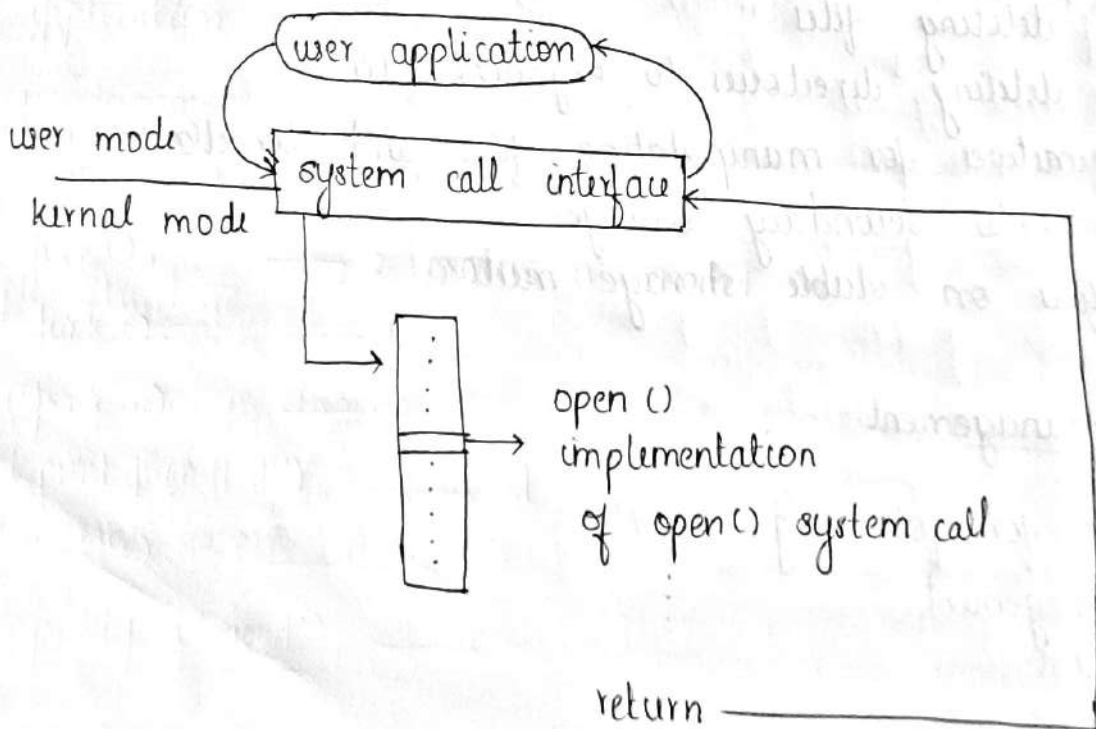 deleting files
user application
user mode
system call interface
kernal mode
open ()
implementation
of open() system call
return